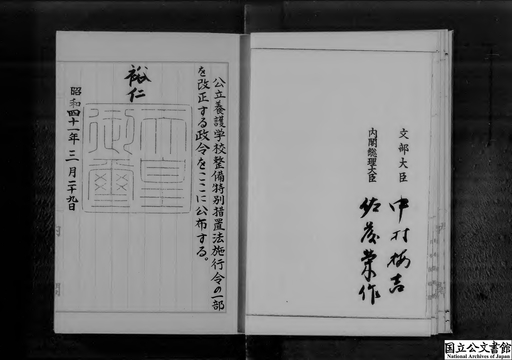 公立養護学校整備特別措置法施行令の一部
を改正する政令をここに公布する。
裕仁
天皇
御璽
昭和四十一年三月二十九日
内閣総理大臣 佐藤榮作
文部大臣 中村梅吉
国立公文書館
National Archives of Japan